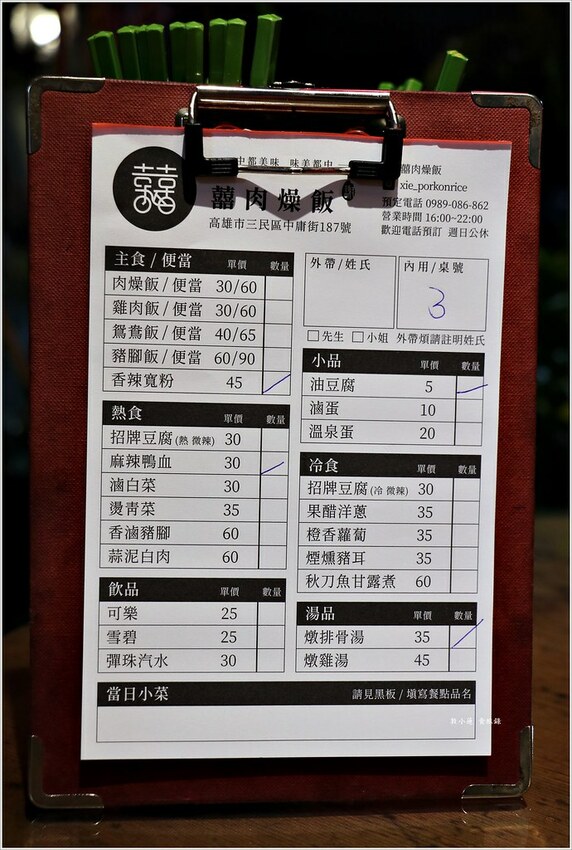 囍
中都美味 味美都中
囍肉燥飯
高雄市三民區中庸街187號
囍肉燥飯
xie_porkonrice
預定電話 0989-086-862
營業時間 16:00~22:00
歡迎電話預訂 週日公休
主食/便當 單價 數量
肉燥飯/便當 30/60
雞肉飯/便當 30/60
鴛鴦飯/便當 40/65
豬腳飯/便當 60/90
香辣寬粉 45
熱食 單價 數量
招牌豆腐(熱 微辣) 30
麻辣鴨血 30
滷白菜 30
燙青菜 35
香滷豬腳 60
蒜泥白肉 60
飲品 單價 數量
可樂 25
雪碧 25
彈珠汽水 30
外帶/姓氏
內用/桌號
3
先生 小姐 外帶煩請註明姓氏
小品 單價 數量
油豆腐 5
滷蛋 10
溫泉蛋 20
冷食 單價 數量
招牌豆腐(冷 微辣) 30
果醋洋蔥 35
橙香蘿蔔 35
煙燻豬耳 35
秋刀魚甘露煮 60
湯品 單價 數量
燉排骨湯 35
燉雞湯 45
當日小菜 請見黑板/填寫餐點品名